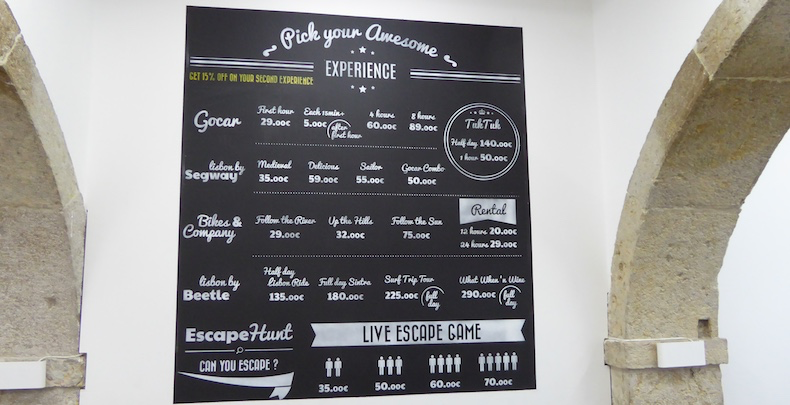 Pick your Awesome
EXPERIENCE
GET 15% OFF ON YOUR SECOND EXPERIENCE
Gocar
First hour
29.00€
Each 15min+
5.00€ after first hour
4 hours
60.00€
8 hours
89.00€
TukTuk
Half day 140.00€
1 hour 50.00€
lisbon by
Segway
Medieval
35.00€
Delicious
59.00€
Sailor
55.00€
Gocar Combo
50.00€
Bikes &
Company
Follow the River
29.00€
Up the Hills
32.00€
Follow the Sun
75.00€
Rental
12 hours 20.00€
24 hours 29.00€
lisbon by
Beetle
Half day
Lisbon Ride
135.00€
Full day Sintra
180.00€
Surf Trip Tour
225.00€ full day
What When'n Wine
290.00€ full day
EscapeHunt
CAN YOU ESCAPE ?
LIVE ESCAPE GAME
35.00€
50.00€
60.00€
70.00€